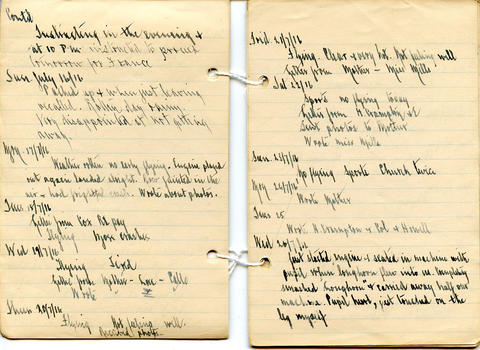 Contd
Instructing in the evening &
at 10 P.M. instructed to proceed
tomorrow for France
Sun July 16/7/16
Packed up & when just leaving
recalled. Rotten day rainy.
Very disappointed at not getting
away.
Mon 17/7/16
Weather rotten no early flying. Engine played
out again landed alright.
air - had frightful crash. Wrote about photos.
Tues 18/7/16
Letter from Cox Re pay
Flying crashes
Wed 19/7/16
Flying
Letter from Mother - Eve -
Wrote
Thurs 20/7/16
Flying Not feeling well.
Received photos
Frid 21/7/16
Flying. Clear & very hot. Not feeling well
Letter from Mother - Miss Mills
Sat 22/7/16
Sports no flying today
Letter from H. Brampton
Sent photos to Mother
Wrote Miss Mills
Sun 23/7/16
No flying Sports Church twice
Mon 24/7/16
Wrote Mother
Tues 25
Wrote H. Brampton & Col & Howell
Wed 26/7/16
Just started engine & seated in machine with
pupil when longhorn flew into us. Completely
smashed longhorn & carried away half our
machine. Pupil hurt, just touched on the
leg myself